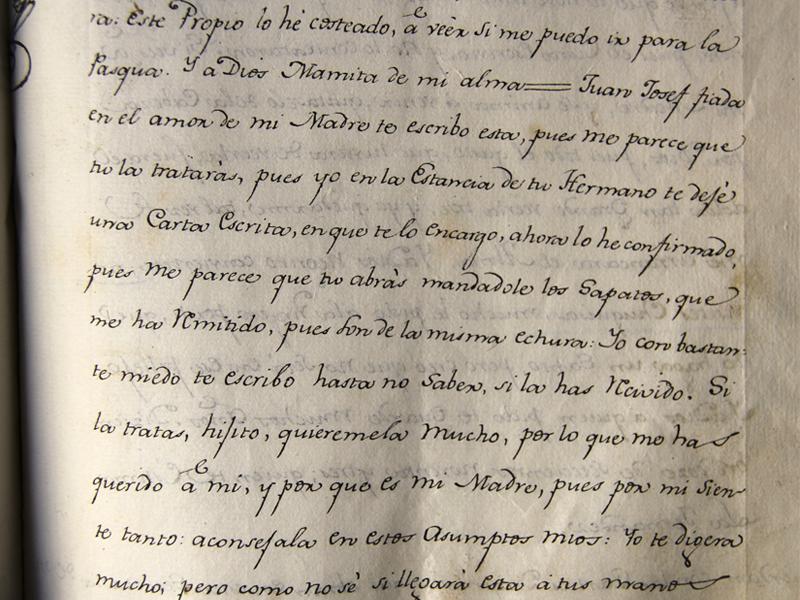 ra: este Propio lo hé costeado, á veèr si me puedo ir para la
Pasqua. Y a Dios Mamita de mi alma== Juan Josef fiada
en el amor de mi Madre te escribo esta, pues me parece que
tu la tratarás, pues yo en la Estancia de tu Hermano te dejè
una Carta Escrita, en que te lo encargo, ahora lo he confirmado,
pues me parece que tu abrás mandadole los Sapatos, que
me ha Remitido, pues son de la misma echura: Yo con bastan-
te miedo te escribo hasta no Saber, si la has Recivido. Si
la tratas, hijito, quieremela mucho, por lo que me ha
querido á mi, y por que es mi Madre, pues por mi Sien-
te tanto: aconsejala en estos Asumptos mios: Yo te digera
mucho; pero como no sè si llegará esta á tus mano